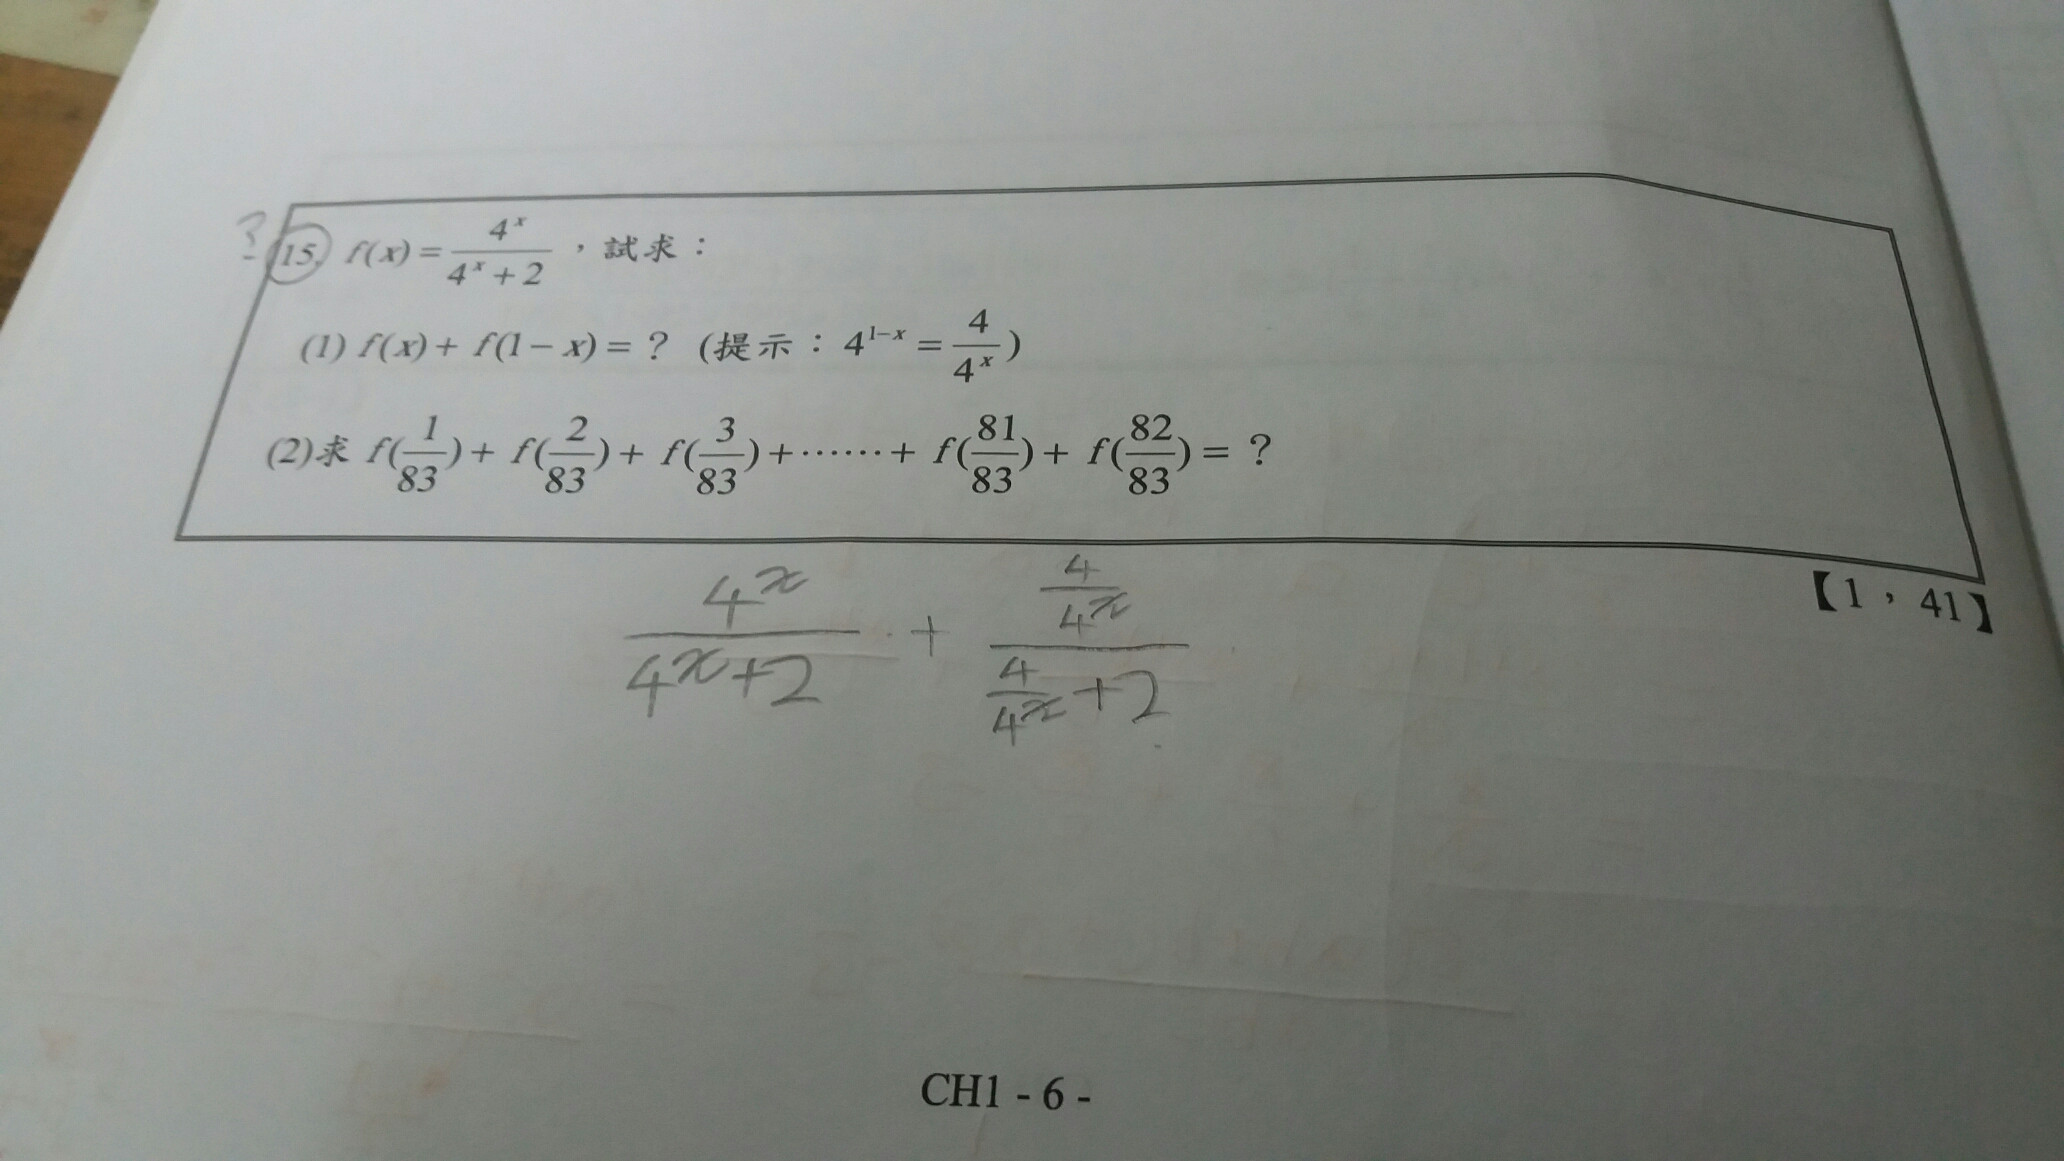 ? 15. f(x) = 4^x / (4^x + 2) ，試求：
(1) f(x) + f(1 − x) = ？ (提示：4^(1−x) = 4 / 4^x)
(2)求 f(1/83) + f(2/83) + f(3/83) + ⋯⋯ + f(81/83) + f(82/83) = ？
【1，41】
4^x / (4^x + 2) + (4 / 4^x) / (4 / 4^x + 2)
CH1 - 6 -